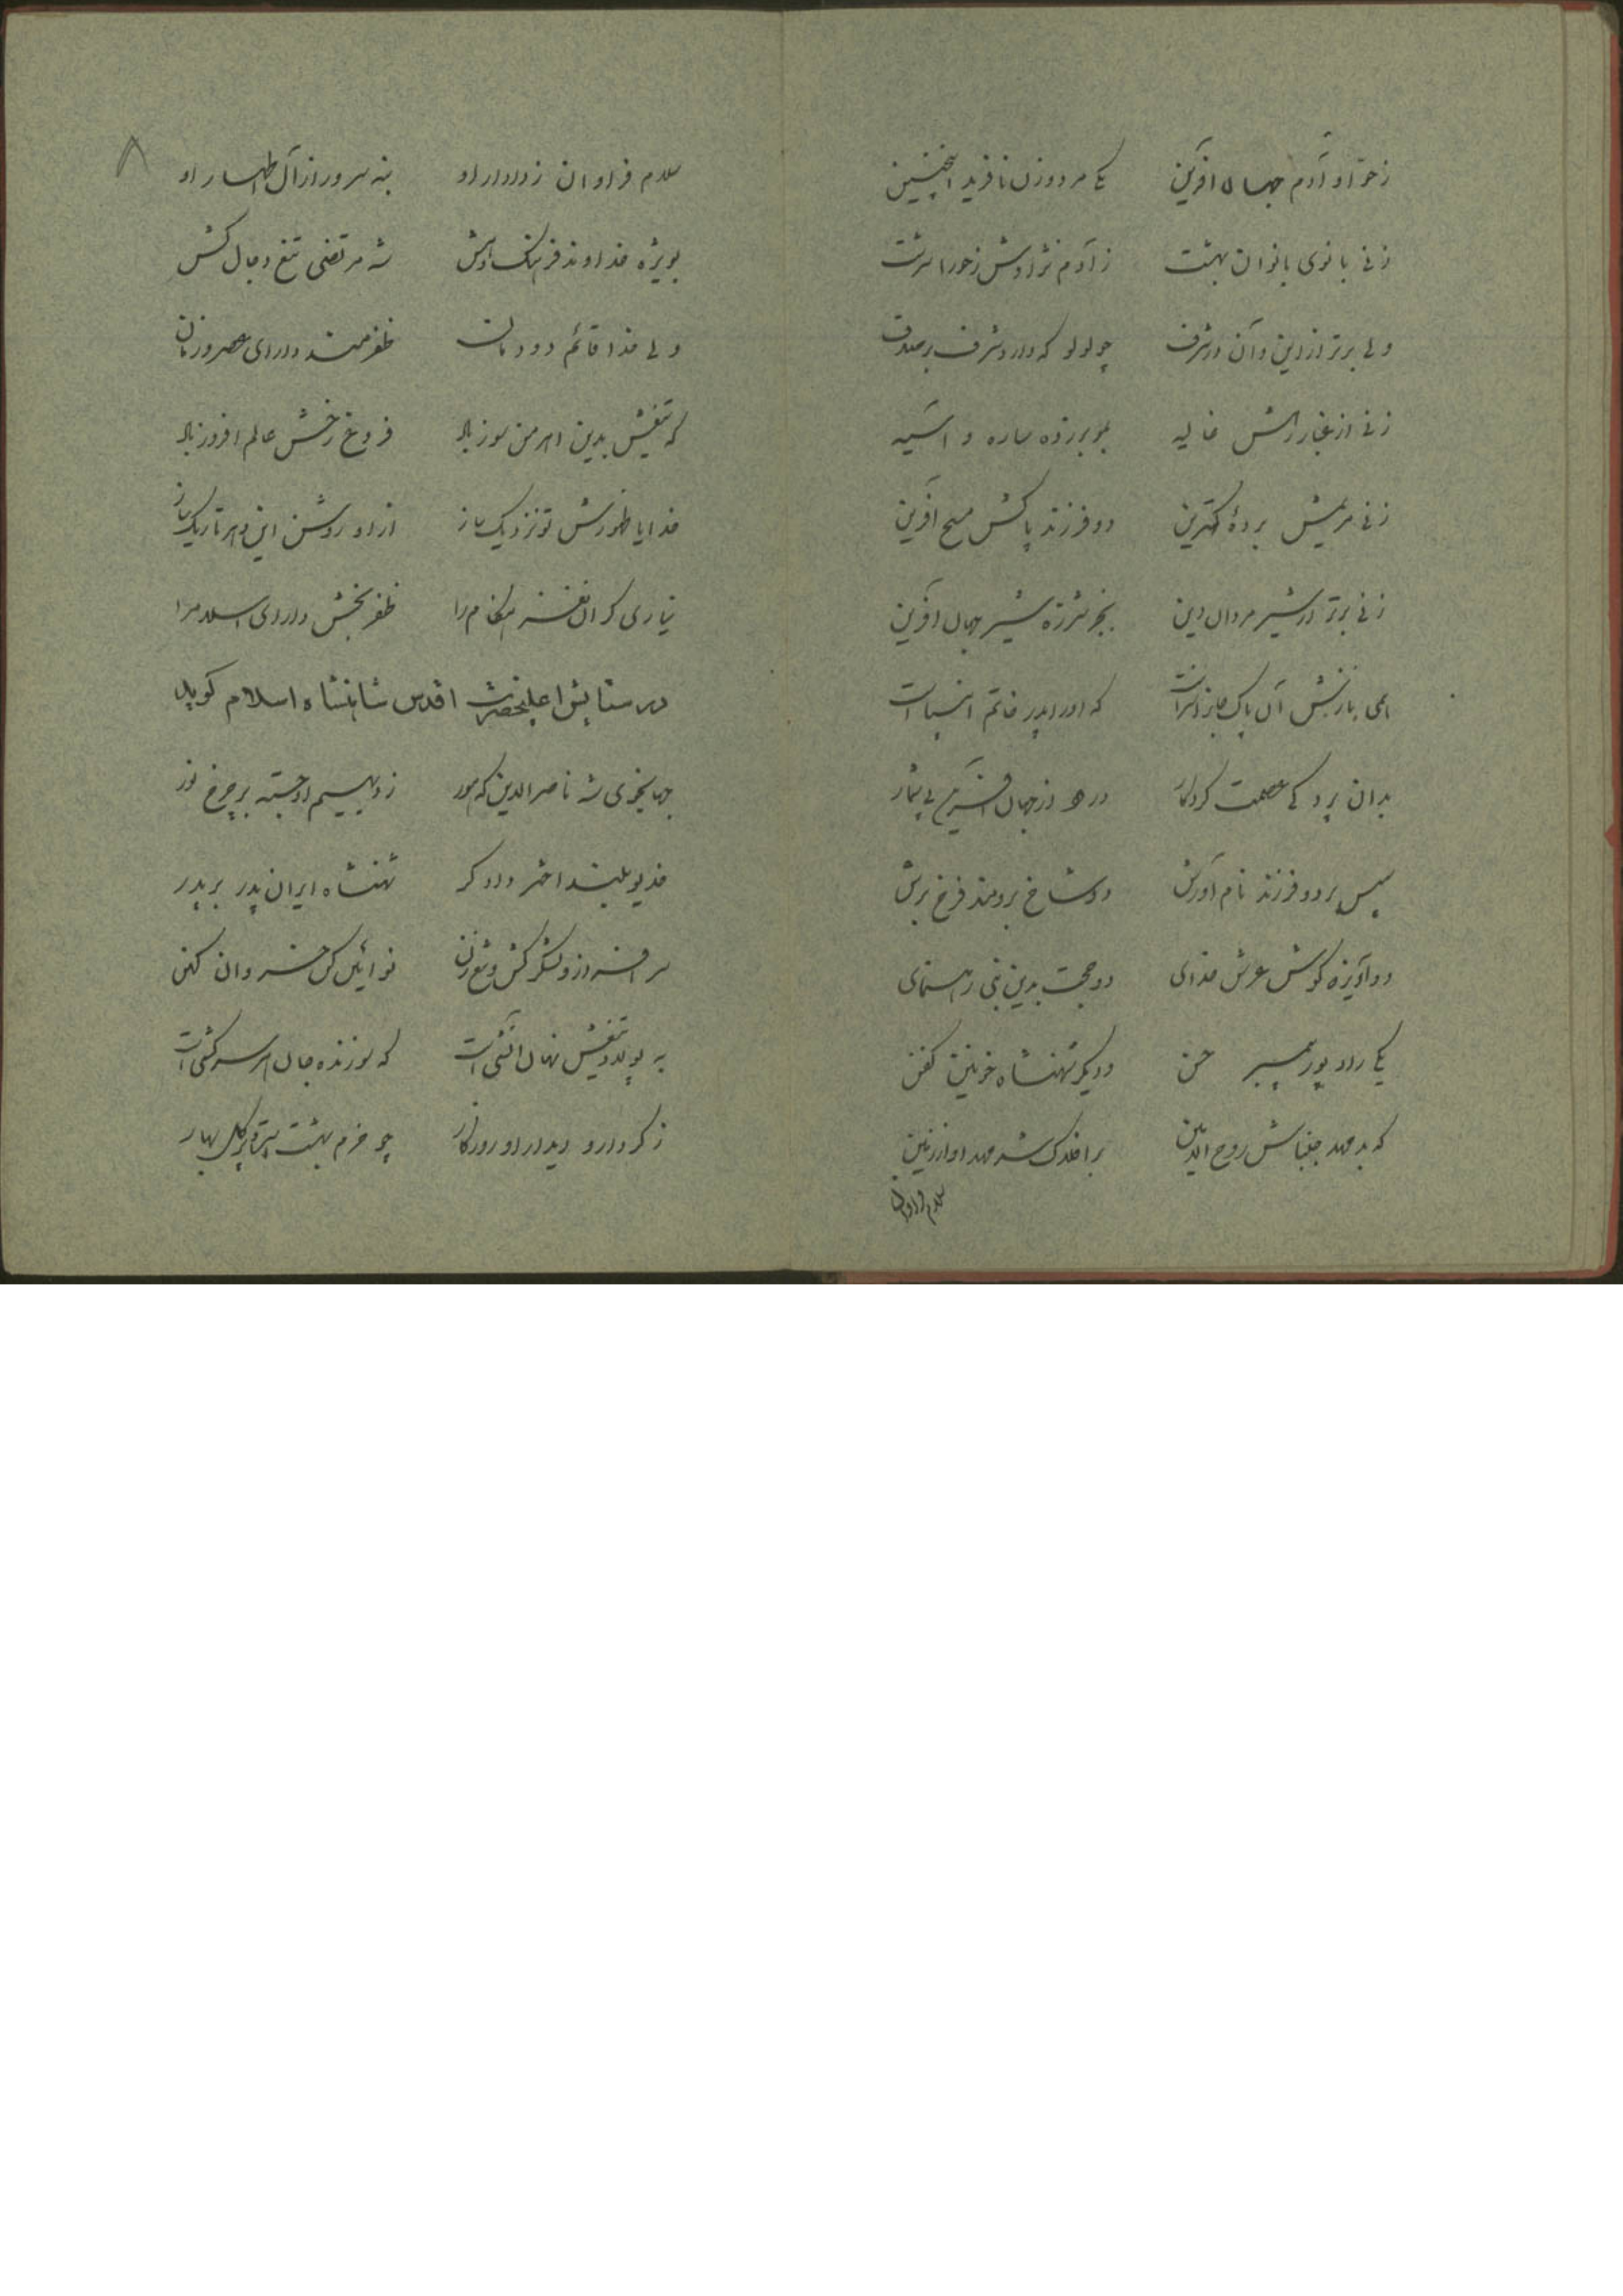 ز حوا و آدم جهان آفرین یکی مرد و زن نافرید اینچنین
زنی بانوی بانوان بهشت ز آدم نژادش ز حورا سرشت
ولی برتر از این و آن در شرف چو لولو که دارد شرف بر صدف
زنی از غبار رهش غالیه بمو بر زده ساره و آسیه
زنی مریمش بردهٔ کمترین دو فرزند پاکش مسیح آفرین
زنی برتر از شیر مردان دین بجز شرزه شیر جهان آفرین
همی نازش آن پاک جانرا که او را پدر خاتم انبیاست
بدان پردگی عصمت کردگار درود از جهان آفرین بی شمار
سپس بر دو فرزند نام آورش دو شاخ برومند فرخ برش
دو آویزه گوش عرش خدای دو حجت بدین نبی رهنمای
یکی راد پور پیمبر حسن و دیگر شهنشاه خونین کفن
که بد مهد جنبانش روح الامین بر افلاک شد مهد او از زمین
سلام فراوان
۸
سلام فراوان ز دادار او بنه سرور از آل اطهار او
بویژه خداوند فرهنگ و هش شه مرتضی تیغ دجال کش
ولی خدا قائم دودمان ظفرمند دارای عصر و زمان
که تیغش بدین اهرمن سوز باد فروغ رخش عالم افروز باد
خدایا ظهورش تو نزدیک ساز از او روشن این دهر تاریک ساز
بیاری گران نغز هنگام را ظفر بخش دارای اسلام را
در ستایش اعلیحضرت اقدس شاهنشاه اسلام گوید
جهانجوی شه ناصرالدین که هور ز دیهیم او جسته بر چرخ نور
خدیو بلند اختر دادگر شهنشاه ایران پدر بر پدر
سرافراز و لشکر کش و تیغ زن نو آئین کن خسروان کهن
به پولاد تیغش نهان آتشی است که سوزنده جان هر سرکشی است
ز کردار و دیدار او روزگار چو خرم بهشت پر گل بهار